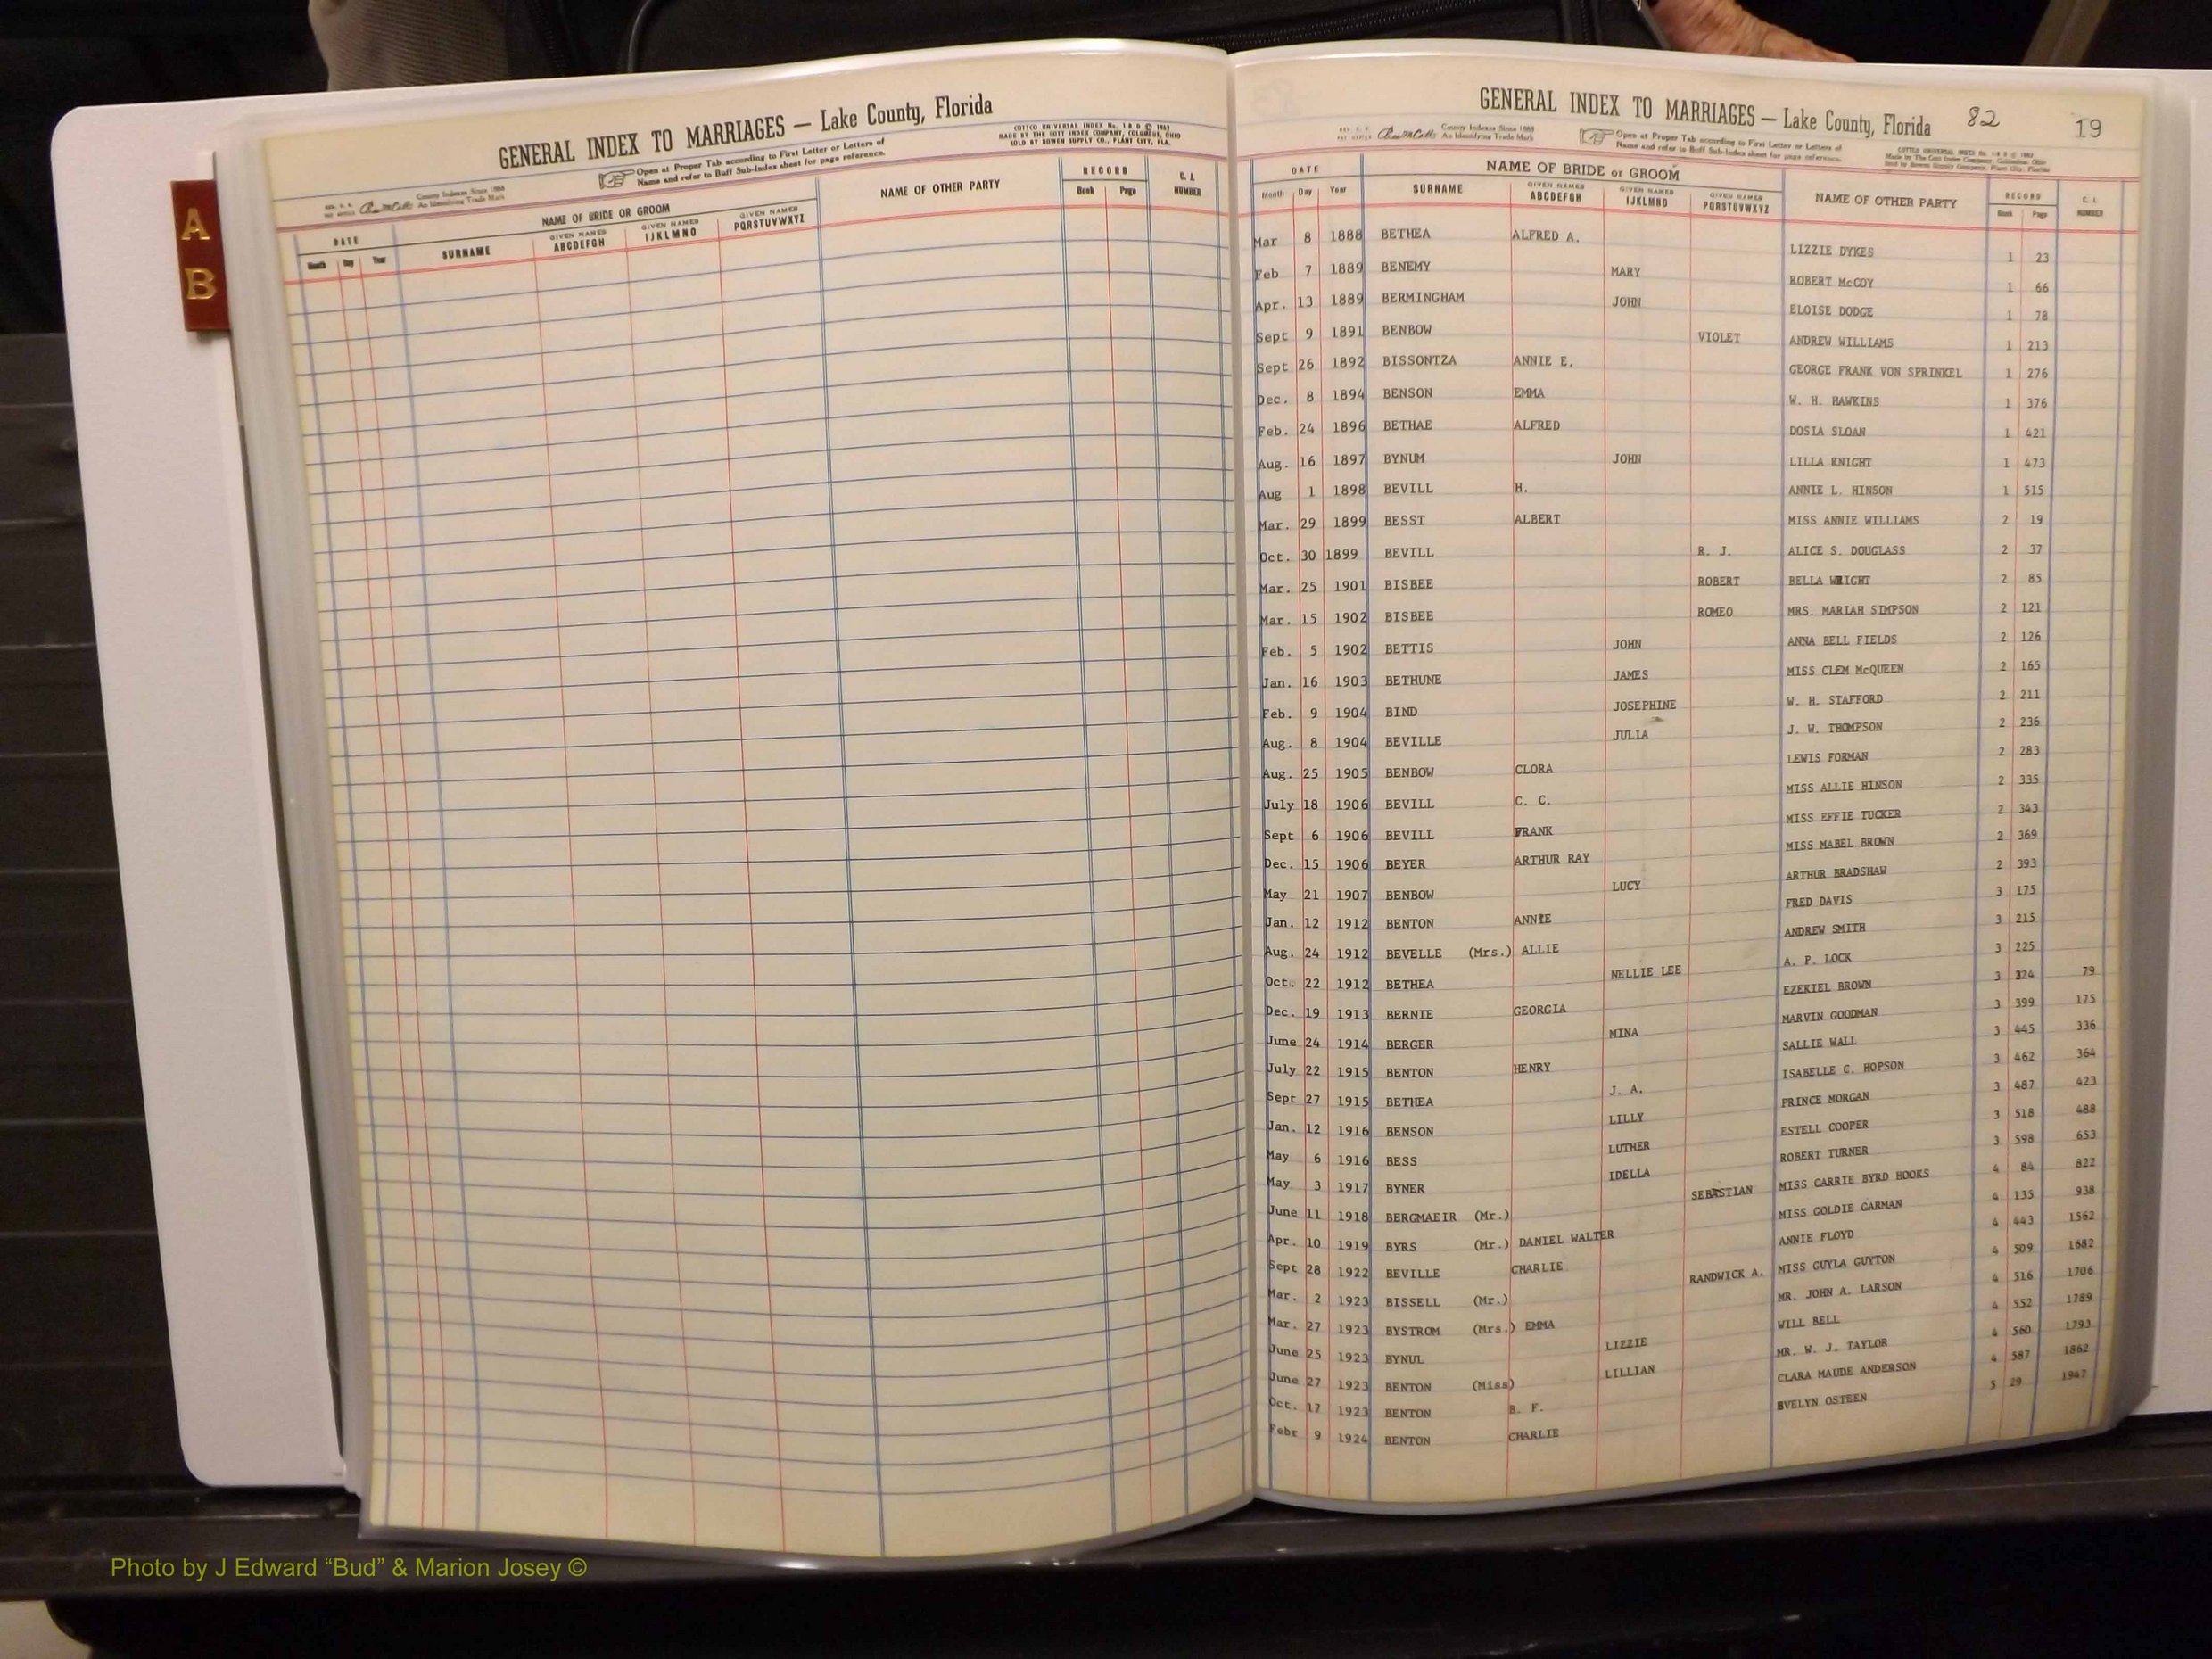 GENERAL INDEX TO MARRIAGES — Lake County, Florida
County Indexes Since 1888
An Identifying Trade Mark
Open at Proper Tab according to First Letter or Letters of
Name and refer to Buff Sub-Index sheet for page reference.
COTTCO UNIVERSAL INDEX No. 1-8 D © 1963
MADE BY THE COTT INDEX COMPANY, COLUMBUS, OHIO
SOLD BY BOWEN SUPPLY CO., PLANT CITY, FLA.
DATE NAME OF BRIDE OR GROOM NAME OF OTHER PARTY RECORD C. I. NUMBER
Month Day Year SURNAME GIVEN NAMES ABCDEFGH GIVEN NAMES IJKLMNO GIVEN NAMES PQRSTUVWXYZ Book Page
A
B
GENERAL INDEX TO MARRIAGES — Lake County, Florida 82 19
County Indexes Since 1888
An Identifying Trade Mark
Open at Proper Tab according to First Letter or Letters of
Name and refer to Buff Sub-Index sheet for page reference.
DATE NAME OF BRIDE or GROOM NAME OF OTHER PARTY RECORD C. I. NUMBER
Month Day Year SURNAME GIVEN NAMES ABCDEFGH GIVEN NAMES IJKLMNO GIVEN NAMES PQRSTUVWXYZ Book Page
Mar 8 1888 BETHEA ALFRED A. LIZZIE DYKES 1 23
Feb 7 1889 BENEMY MARY ROBERT McCOY 1 66
Apr. 13 1889 BERMINGHAM JOHN ELOISE DODGE 1 78
Sept 9 1891 BENBOW VIOLET ANDREW WILLIAMS 1 213
Sept 26 1892 BISSONTZA ANNIE E. GEORGE FRANK VON SPRINKEL 1 276
Dec. 8 1894 BENSON EMMA W. H. HAWKINS 1 376
Feb. 24 1896 BETHAE ALFRED DOSIA SLOAN 1 421
Aug. 16 1897 BYNUM JOHN LILLA KNIGHT 1 473
Aug 1 1898 BEVILL H. ANNIE L. HINSON 1 515
Mar. 29 1899 BESST ALBERT MISS ANNIE WILLIAMS 2 19
Oct. 30 1899 BEVILL R. J. ALICE S. DOUGLASS 2 37
Mar. 25 1901 BISBEE ROBERT BELLA WRIGHT 2 85
Mar. 15 1902 BISBEE ROMEO MRS. MARIAH SIMPSON 2 121
Feb. 5 1902 BETTIS JOHN ANNA BELL FIELDS 2 126
Jan. 16 1903 BETHUNE JAMES MISS CLEM McQUEEN 2 165
Feb. 9 1904 BIND JOSEPHINE W. H. STAFFORD 2 211
Aug. 8 1904 BEVILLE JULIA J. W. THOMPSON 2 236
Aug. 25 1905 BENBOW CLORA LEWIS FORMAN 2 283
July 18 1906 BEVILL C. C. MISS ALLIE HINSON 2 335
Sept 6 1906 BEVILL FRANK MISS EFFIE TUCKER 2 343
Dec. 15 1906 BEYER ARTHUR RAY MISS MABEL BROWN 2 369
May 21 1907 BENBOW LUCY ARTHUR BRADSHAW 2 393
Jan. 12 1912 BENTON ANNIE FRED DAVIS 3 175
Aug. 24 1912 BEVELLE (Mrs.) ALLIE ANDREW SMITH 3 215
Oct. 22 1912 BETHEA NELLIE LEE A. P. LOCK 3 225
Dec. 19 1913 BERNIE GEORGIA EZEKIEL BROWN 3 324 79
June 24 1914 BERGER MINA MARVIN GOODMAN 3 399 175
July 22 1915 BENTON HENRY SALLIE WALL 3 445 336
Sept 27 1915 BETHEA J. A. ISABELLE C. HOPSON 3 462 364
Jan. 12 1916 BENSON LILLY PRINCE MORGAN 3 487 423
May 6 1916 BESS LUTHER ESTELL COOPER 3 518 488
May 3 1917 BYNER IDELLA ROBERT TURNER 3 598 653
June 11 1918 BERGMAEIR (Mr.) SEBASTIAN MISS CARRIE BYRD HOOKS 4 84 822
Apr. 10 1919 BYRS (Mr.) DANIEL WALTER MISS GOLDIE GARMAN 4 135 938
Sept 28 1922 BEVILLE CHARLIE ANNIE FLOYD 4 443 1562
Mar. 2 1923 BISSELL (Mr.) RANDWICK A. MISS GUYLA GUYTON 4 509 1682
Mar. 27 1923 BYSTROM (Mrs.) EMMA MR. JOHN A. LARSON 4 516 1706
June 25 1923 BYNUL LIZZIE WILL BELL 4 552 1789
June 27 1923 BENTON (Miss) LILLIAN MR. W. J. TAYLOR 4 560 1793
Oct. 17 1923 BENTON B. F. CLARA MAUDE ANDERSON 4 587 1862
Febr 9 1924 BENTON CHARLIE EVELYN OSTEEN 5 29 1947
Photo by J Edward “Bud” & Marion Josey ©